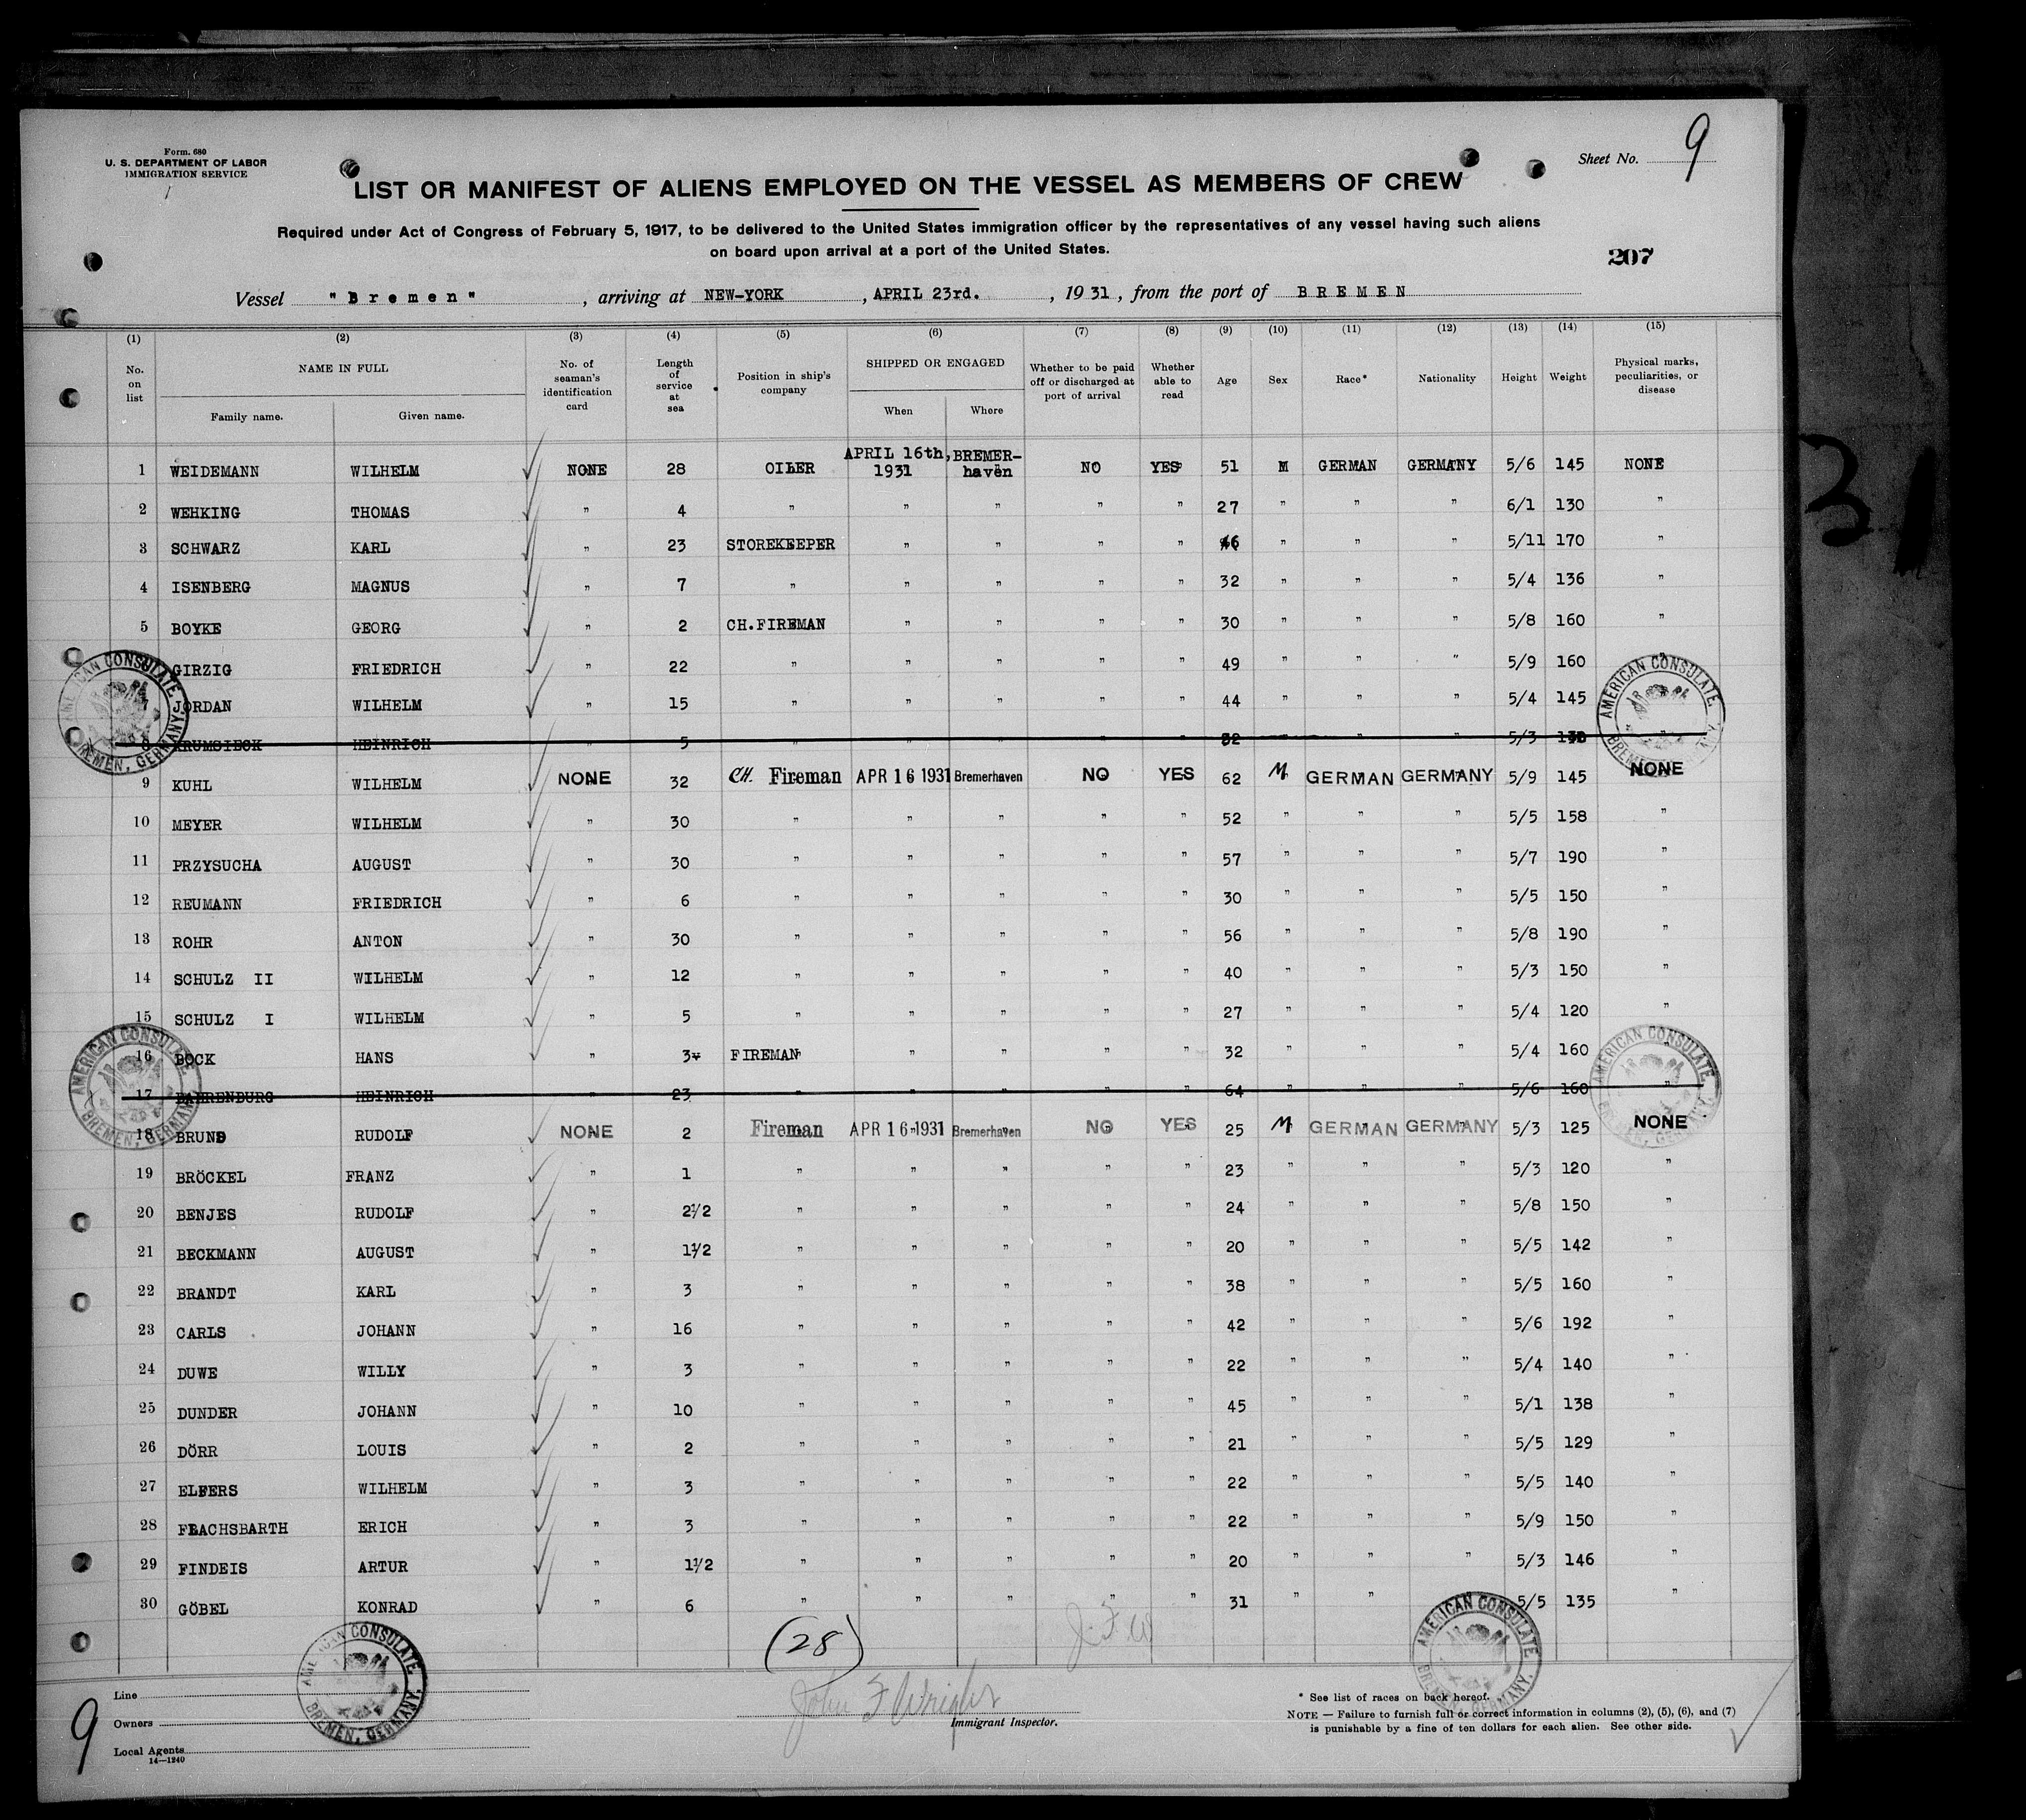 Form. 680
U. S. DEPARTMENT OF LABOR
IMMIGRATION SERVICE
Sheet No. 9
LIST OR MANIFEST OF ALIENS EMPLOYED ON THE VESSEL AS MEMBERS OF CREW
Required under Act of Congress of February 5, 1917, to be delivered to the United States immigration officer by the representatives of any vessel having such aliens
on board upon arrival at a port of the United States.
207
Vessel "Bremen", arriving at NEW-YORK, APRIL 23rd., 1931, from the port of BREMEN
(1) (2) (3) (4) (5) (6) (7) (8) (9) (10) (11) (12) (13) (14) (15)
No. on list NAME IN FULL Family name. Given name. No. of seaman's identification card Length of service at sea Position in ship's company SHIPPED OR ENGAGED When Where Whether to be paid off or discharged at port of arrival Whether able to read Age Sex Race* Nationality Height Weight Physical marks, peculiarities, or disease
1 WEIDEMANN WILHELM NONE 28 OILER APRIL 16th, 1931 BREMER-haven NO YES 51 M GERMAN GERMANY 5/6 145 NONE
2 WEHKING THOMAS " 4 " " " " " 27 " " " 6/1 130 "
3 SCHWARZ KARL " 23 STOREKEEPER " " " " 46 " " " 5/11 170 "
4 ISENBERG MAGNUS " 7 " " " " " 32 " " " 5/4 136 "
5 BOYKE GEORG " 2 CH.FIREMAN " " " " 30 " " " 5/8 160 "
GIRZIG FRIEDRICH " 22 " " " " " 49 " " " 5/9 160 "
JORDAN WILHELM " 15 " " " " " 44 " " " 5/4 145
8 KRUMSIECK HEINRICH " 5 " " " " " 32 " " " 5/3 "
9 KUHL WILHELM NONE 32 CH. Fireman APR 16 1931 Bremerhaven NO YES 62 M GERMAN GERMANY 5/9 145 NONE
10 MEYER WILHELM " 30 " " " " " 52 " " " 5/5 158 "
11 PRZYSUCHA AUGUST " 30 " " " " " 57 " " " 5/7 190 "
12 REUMANN FRIEDRICH " 6 " " " " " 30 " " " 5/5 150 "
13 ROHR ANTON " 30 " " " " " 56 " " " 5/8 190 "
14 SCHULZ II WILHELM " 12 " " " " " 40 " " " 5/3 150 "
15 SCHULZ I WILHELM " 5 " " " " " 27 " " " 5/4 120 "
16 BOCK HANS " 3 FIREMAN " " " " 32 " " " 5/4 160 "
17 FAHRENBURG HEINRICH " 23 " " " " " 64 " " " 5/6 160 "
18 BRUNS RUDOLF NONE 2 Fireman APR 16 1931 Bremerhaven NO YES 25 M GERMAN GERMANY 5/3 125 NONE
19 BRÖCKEL FRANZ " 1 " " " " " 23 " " " 5/3 120 "
20 BENJES RUDOLF " 2½ " " " " " 24 " " " 5/8 150 "
21 BECKMANN AUGUST " 1½ " " " " " 20 " " " 5/5 142 "
22 BRANDT KARL " 3 " " " " " 38 " " " 5/5 160 "
23 CARLS JOHANN " 16 " " " " " 42 " " " 5/6 192 "
24 DUWE WILLY " 3 " " " " " 22 " " " 5/4 140 "
25 DUNDER JOHANN " 10 " " " " " 45 " " " 5/1 138 "
26 DÖRR LOUIS " 2 " " " " " 21 " " " 5/5 129 "
27 ELFERS WILHELM " 3 " " " " " 22 " " " 5/5 140 "
28 FLACHSBARTH ERICH " 3 " " " " " 22 " " " 5/9 150 "
29 FINDEIS ARTUR " 1½ " " " " " 20 " " " 5/3 146 "
30 GÖBEL KONRAD " 6 " " " " " 31 " " 5/5 135 "
AMERICAN CONSULATE, BREMEN, GERMANY.
AMERICAN CONSULATE, BREMEN, GERMANY.
AMERICAN CONSULATE, BREMEN, GERMANY.
AMERICAN CONSULATE, BREMEN, GERMANY.
AMERICAN CONSULATE, BREMEN, GERMANY.
AMERICAN CONSULATE, BREMEN, GERMANY.
(28)
J.F.W
John F Wright
Immigrant Inspector.
Line
Owners
Local Agents
14—1240
9
* See list of races on back hereof.
NOTE — Failure to furnish full or correct information in columns (2), (5), (6), and (7)
is punishable by a fine of ten dollars for each alien. See other side.
31